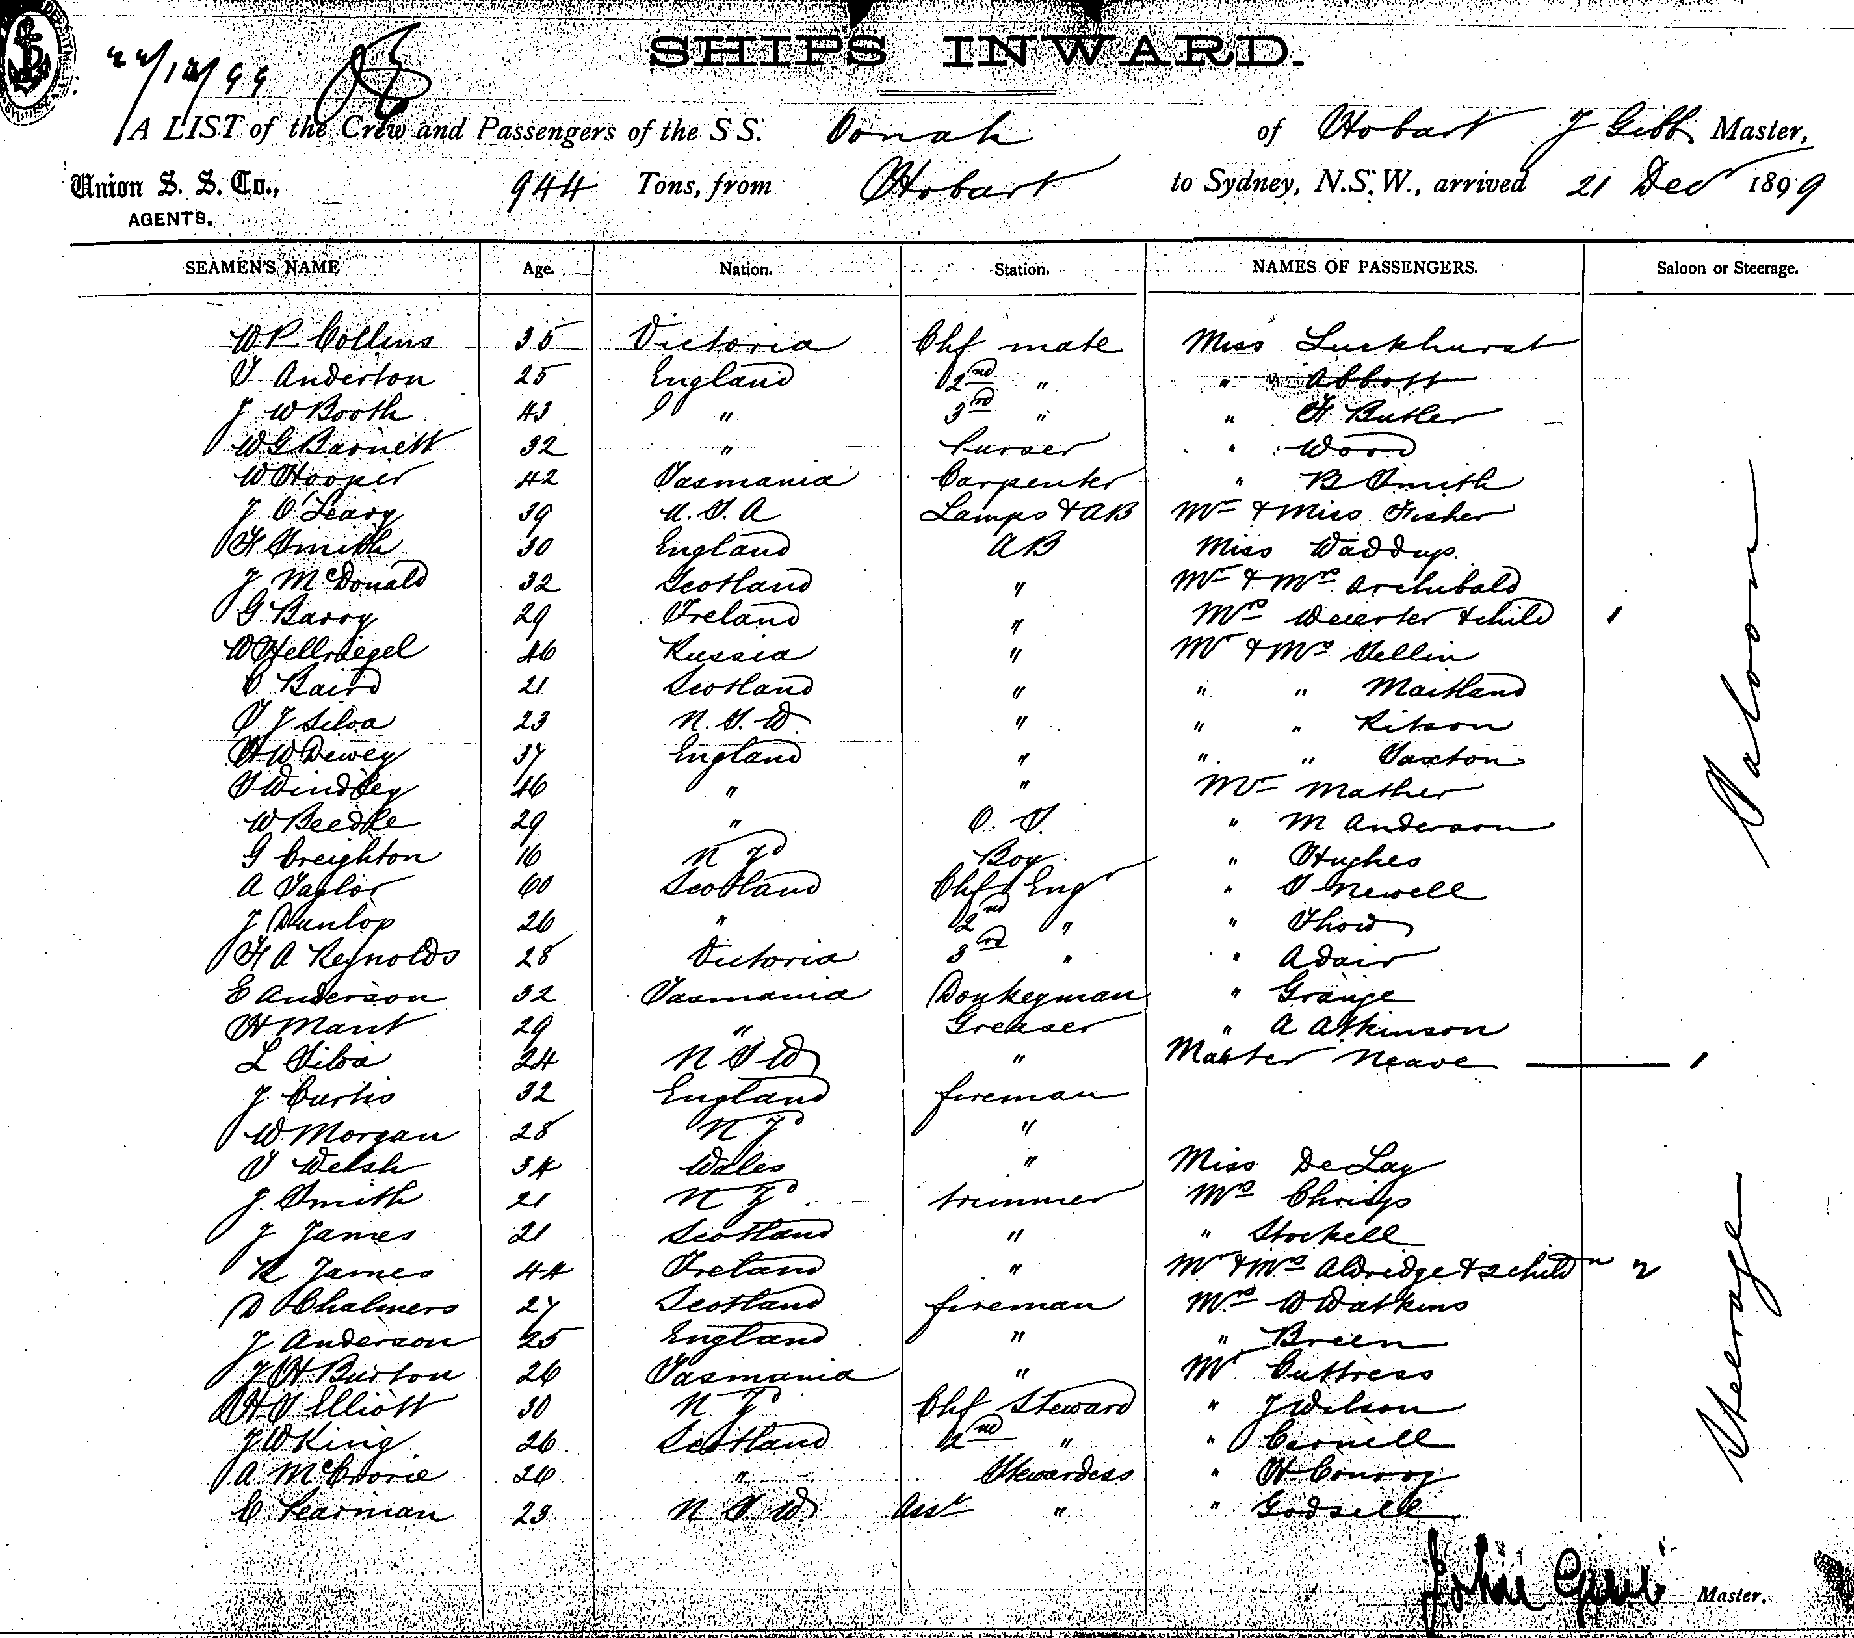 22/12/99
SHIPS INWARD.
A LIST of the Crew and Passengers of the S S. Oonah of Hobart J Gibb Master,
Union S. S. Co., 944 Tons, from Hobart to Sydney, N.S.W., arrived 21 Dec 1899
AGENTS.
SEAMEN'S NAME Age. Nation. Station. NAMES OF PASSENGERS. Saloon or Steerage.
W P Collins 35 Victoria Chf mate Miss Luckhurst
T Anderton 25 England 2nd " " " Abbott
J W Booth 43 " 3rd " " F Butler
W G Barnett 32 " Purser " Wood
W Hooper 42 Tasmania Carpenter " B Smith
J O'Leary 39 U.S.A Lamps & AB Mr & Miss Fisher
F Smith 30 England AB Miss Waddup.
J McDonald 32 Scotland " Mr & Mrs Archibald
G Barry 29 Ireland " Mrs & child 1
W Hellriegel 46 Russia " Mr & Mrs Tellin
Baird 21 Scotland " " " Maitland
T J Silva 23 N.S.W. " " " Ritson
H W Dewey 37 England " " " Saxton
T Windley 46 " " Mr Mather
W Beedle 29 " O.S. " M Anderson
G Creighton 16 N Zd Boy " Hughes
A Taylor 60 Scotland Chf Engr " T Newell
J Dunlop 26 " 2nd " " Thow
F A Reynolds 28 Victoria 3rd " " Adair
E Anderson 32 Tasmania Donkeyman " Grange
H Mant 29 " Greaser " A Atkinson
L Silva 24 N S W " Master Neave 1
J Curtis 32 England fireman
W Morgan 28 N.Zd "
T Welsh 34 Wales " Miss De Lay
J. Smith 21 N Zd trimmer Mrs Chrisp
J James 21 Scotland " " Stockell
R James 44 Ireland " Mr & Mrs Aldridge & 2 childn 2
D Chalmers 27 Scotland fireman Mrs W Watkins
J Anderson 25 England " " Breen
J H Burton 26 Tasmania " Mr Buttress
H T Elliott 30 N Zd Chf Steward " J Wilson
J W King 26 Scotland 2nd " "
A McCrorie 26 " Stewardess " H Conroy
E Pearman 23 N S W Asst " " Godsell
Saloon
Steerage
John Gibb Master.